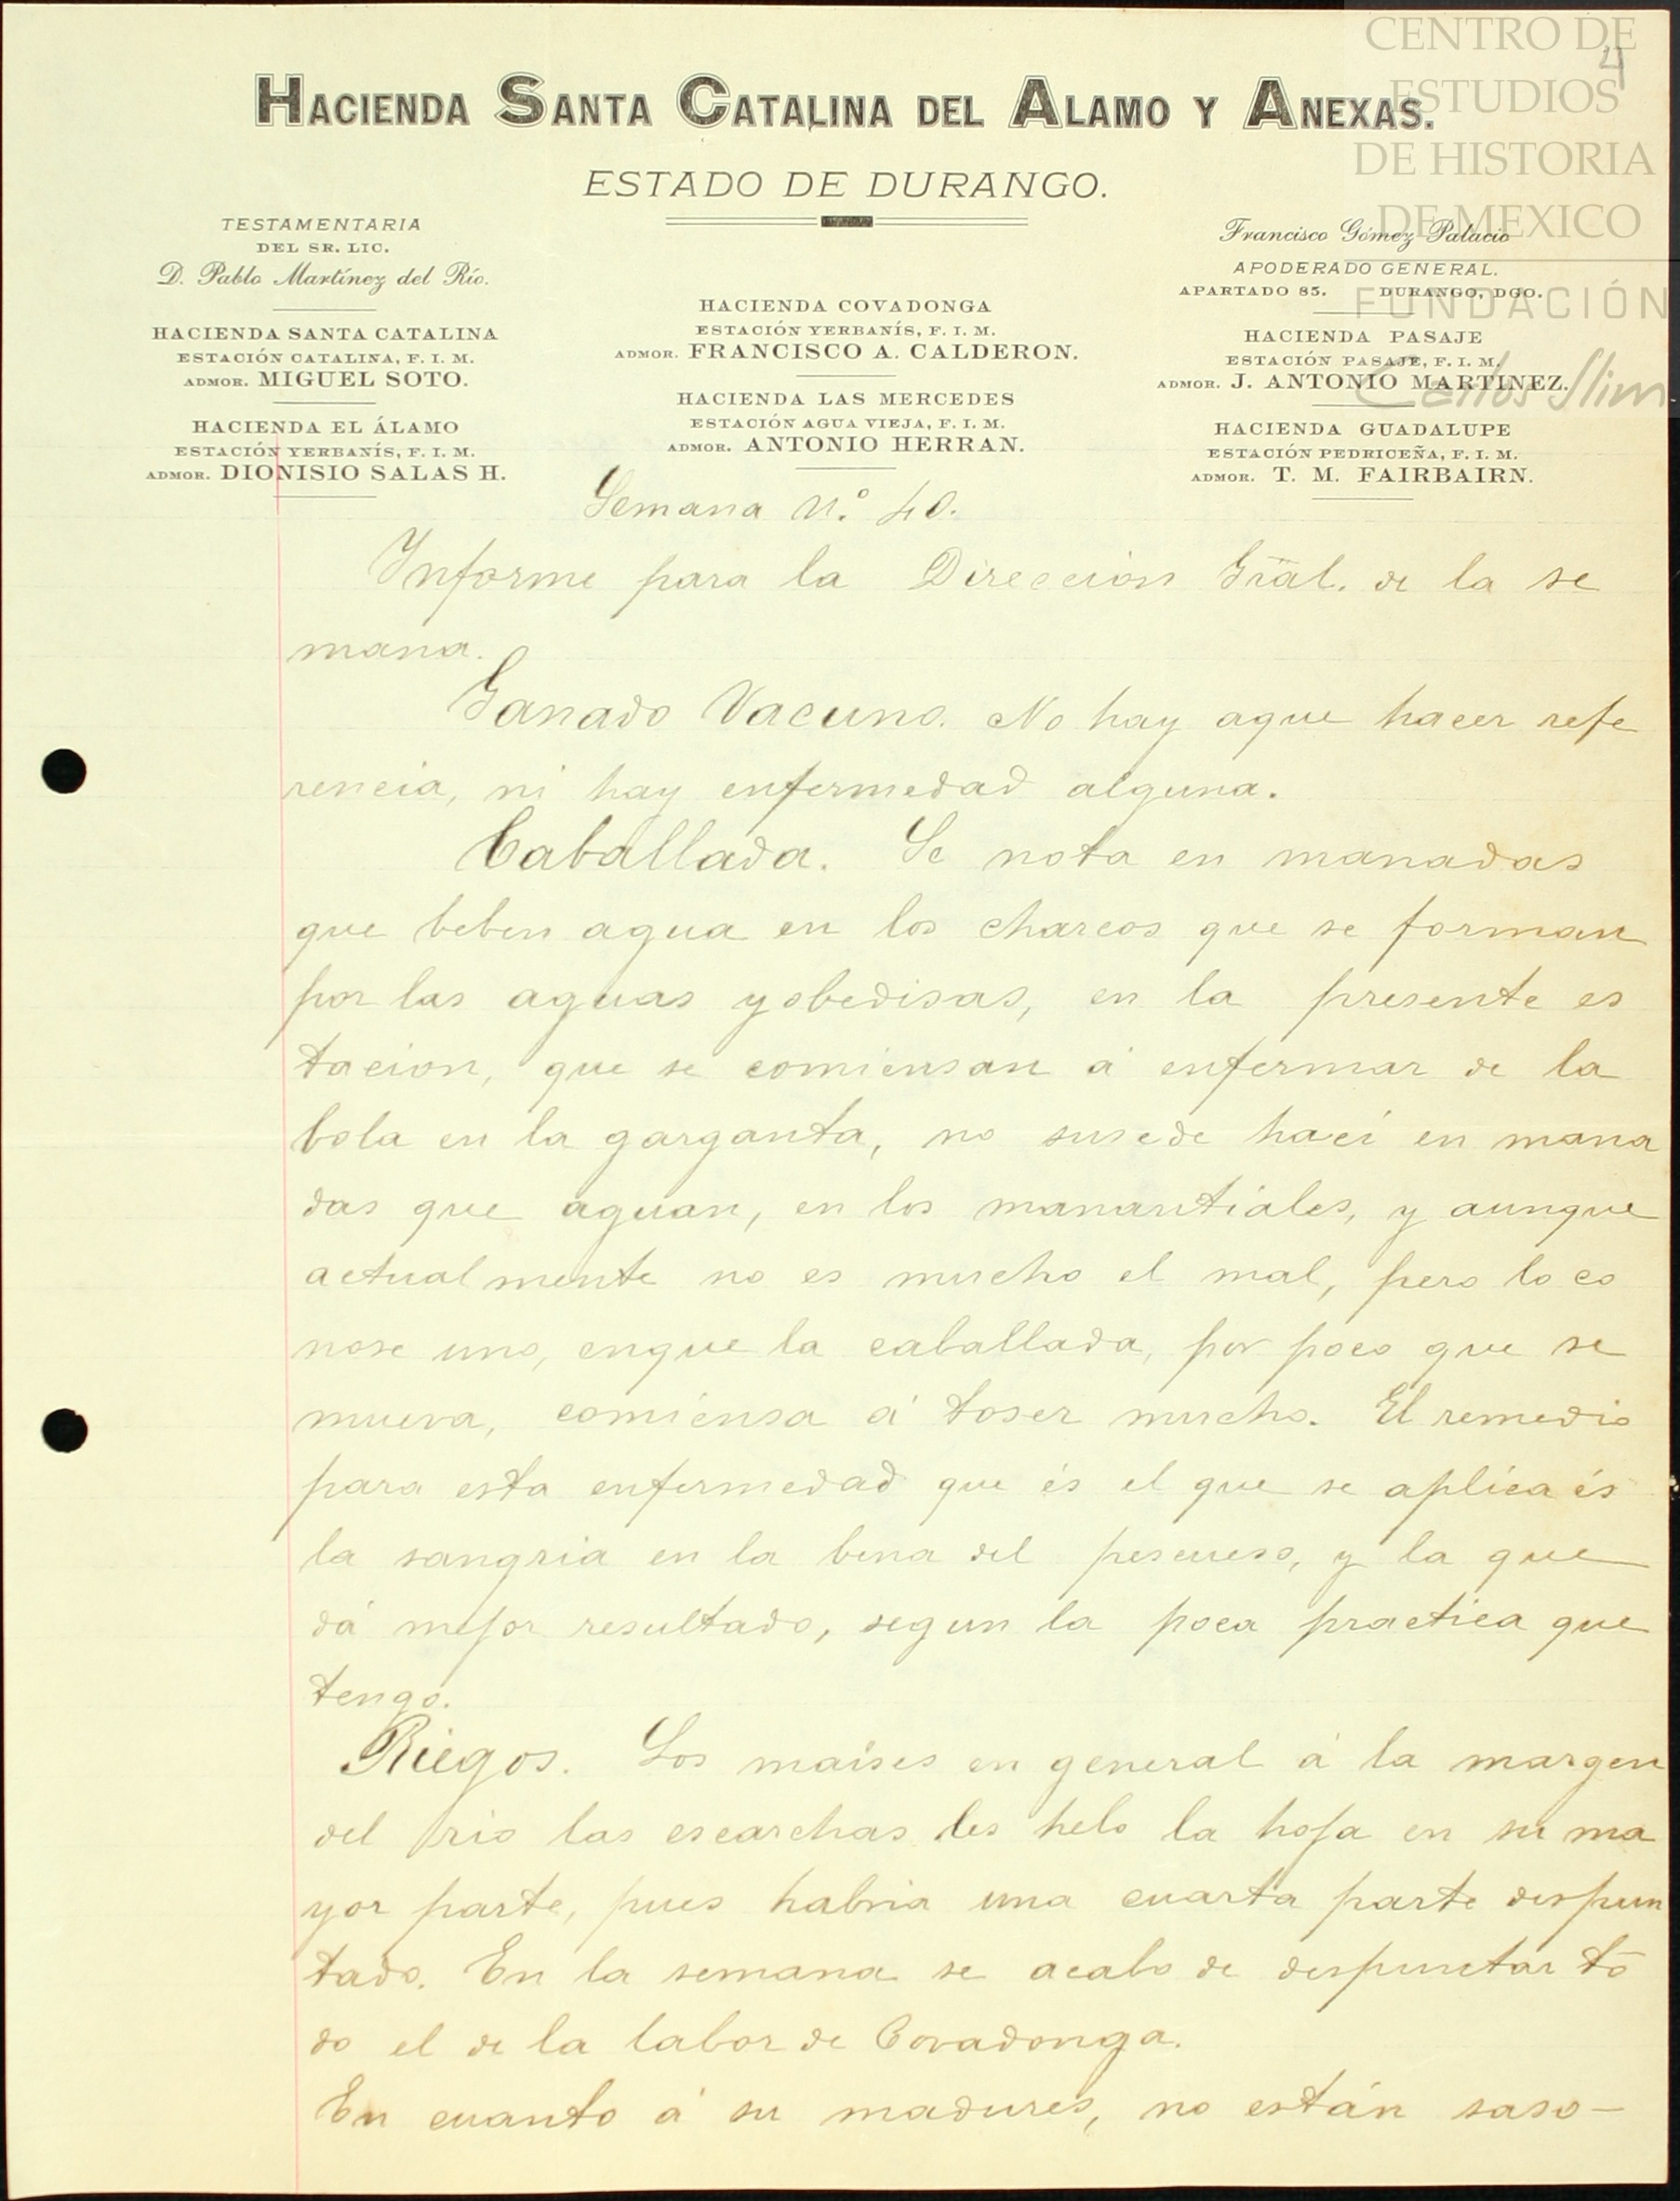 CENTRO DE
ESTUDIOS
DE HISTORIA
DE MEXICO
FUNDACIÓN
Carlos Slim
4
HACIENDA SANTA CATALINA DEL ALAMO Y ANEXAS.
ESTADO DE DURANGO.
TESTAMENTARIA
DEL SR. LIC.
D. Pablo Martínez del Río.
HACIENDA SANTA CATALINA
ESTACIÓN CATALINA, F. I. M.
ADMOR. MIGUEL SOTO.
HACIENDA EL ÁLAMO
ESTACIÓN YERBANÍS, F. I. M.
ADMOR. DIONISIO SALAS H.
HACIENDA COVADONGA
ESTACIÓN YERBANÍS, F. I. M.
ADMOR. FRANCISCO A. CALDERON.
HACIENDA LAS MERCEDES
ESTACIÓN AGUA VIEJA, F. I. M.
ADMOR. ANTONIO HERRAN.
Francisco Gómez Palacio
APODERADO GENERAL.
APARTADO 85. DURANGO, DGO.
HACIENDA PASAJE
ESTACIÓN PASAJE, F. I. M.
ADMOR. J. ANTONIO MARTINEZ.
HACIENDA GUADALUPE
ESTACIÓN PEDRICEÑA, F. I. M.
ADMOR. T. M. FAIRBAIRN.
Semana N.º 40.
Informe para la Direccion Gral. de la se
mana.
Ganado Vacuno. No hay aque hacer refe
rencia, ni hay enfermedad alguna.
Caballada. Se nota en manadas
que beben agua en los charcos que se forman
por las aguas yobedisas, en la presente es
tacion, que se comiensan á enfermar de la
bola en la garganta, no susede haci en mana
das que aguan, en los manantiales, y aunque
actualmente no es mucho el mal, pero lo co
nose uno, enque la caballada, por poco que se
mueva, comiensa á toser mucho. El remedio
para esta enfermedad que és el que se aplica és
la sangria en la bena del pescueso, y la que
dá mejor resultado, segun la poca practica que
tengo.
Riegos. Los maises en general á la margen
del rio las escarchas les helo la hoja en su ma
yor parte, pues habria una cuarta parte despun
tado. En la semana se acabo de despuntar to
do el de la labor de Covadonga.
En cuanto á su madures, no están saso-